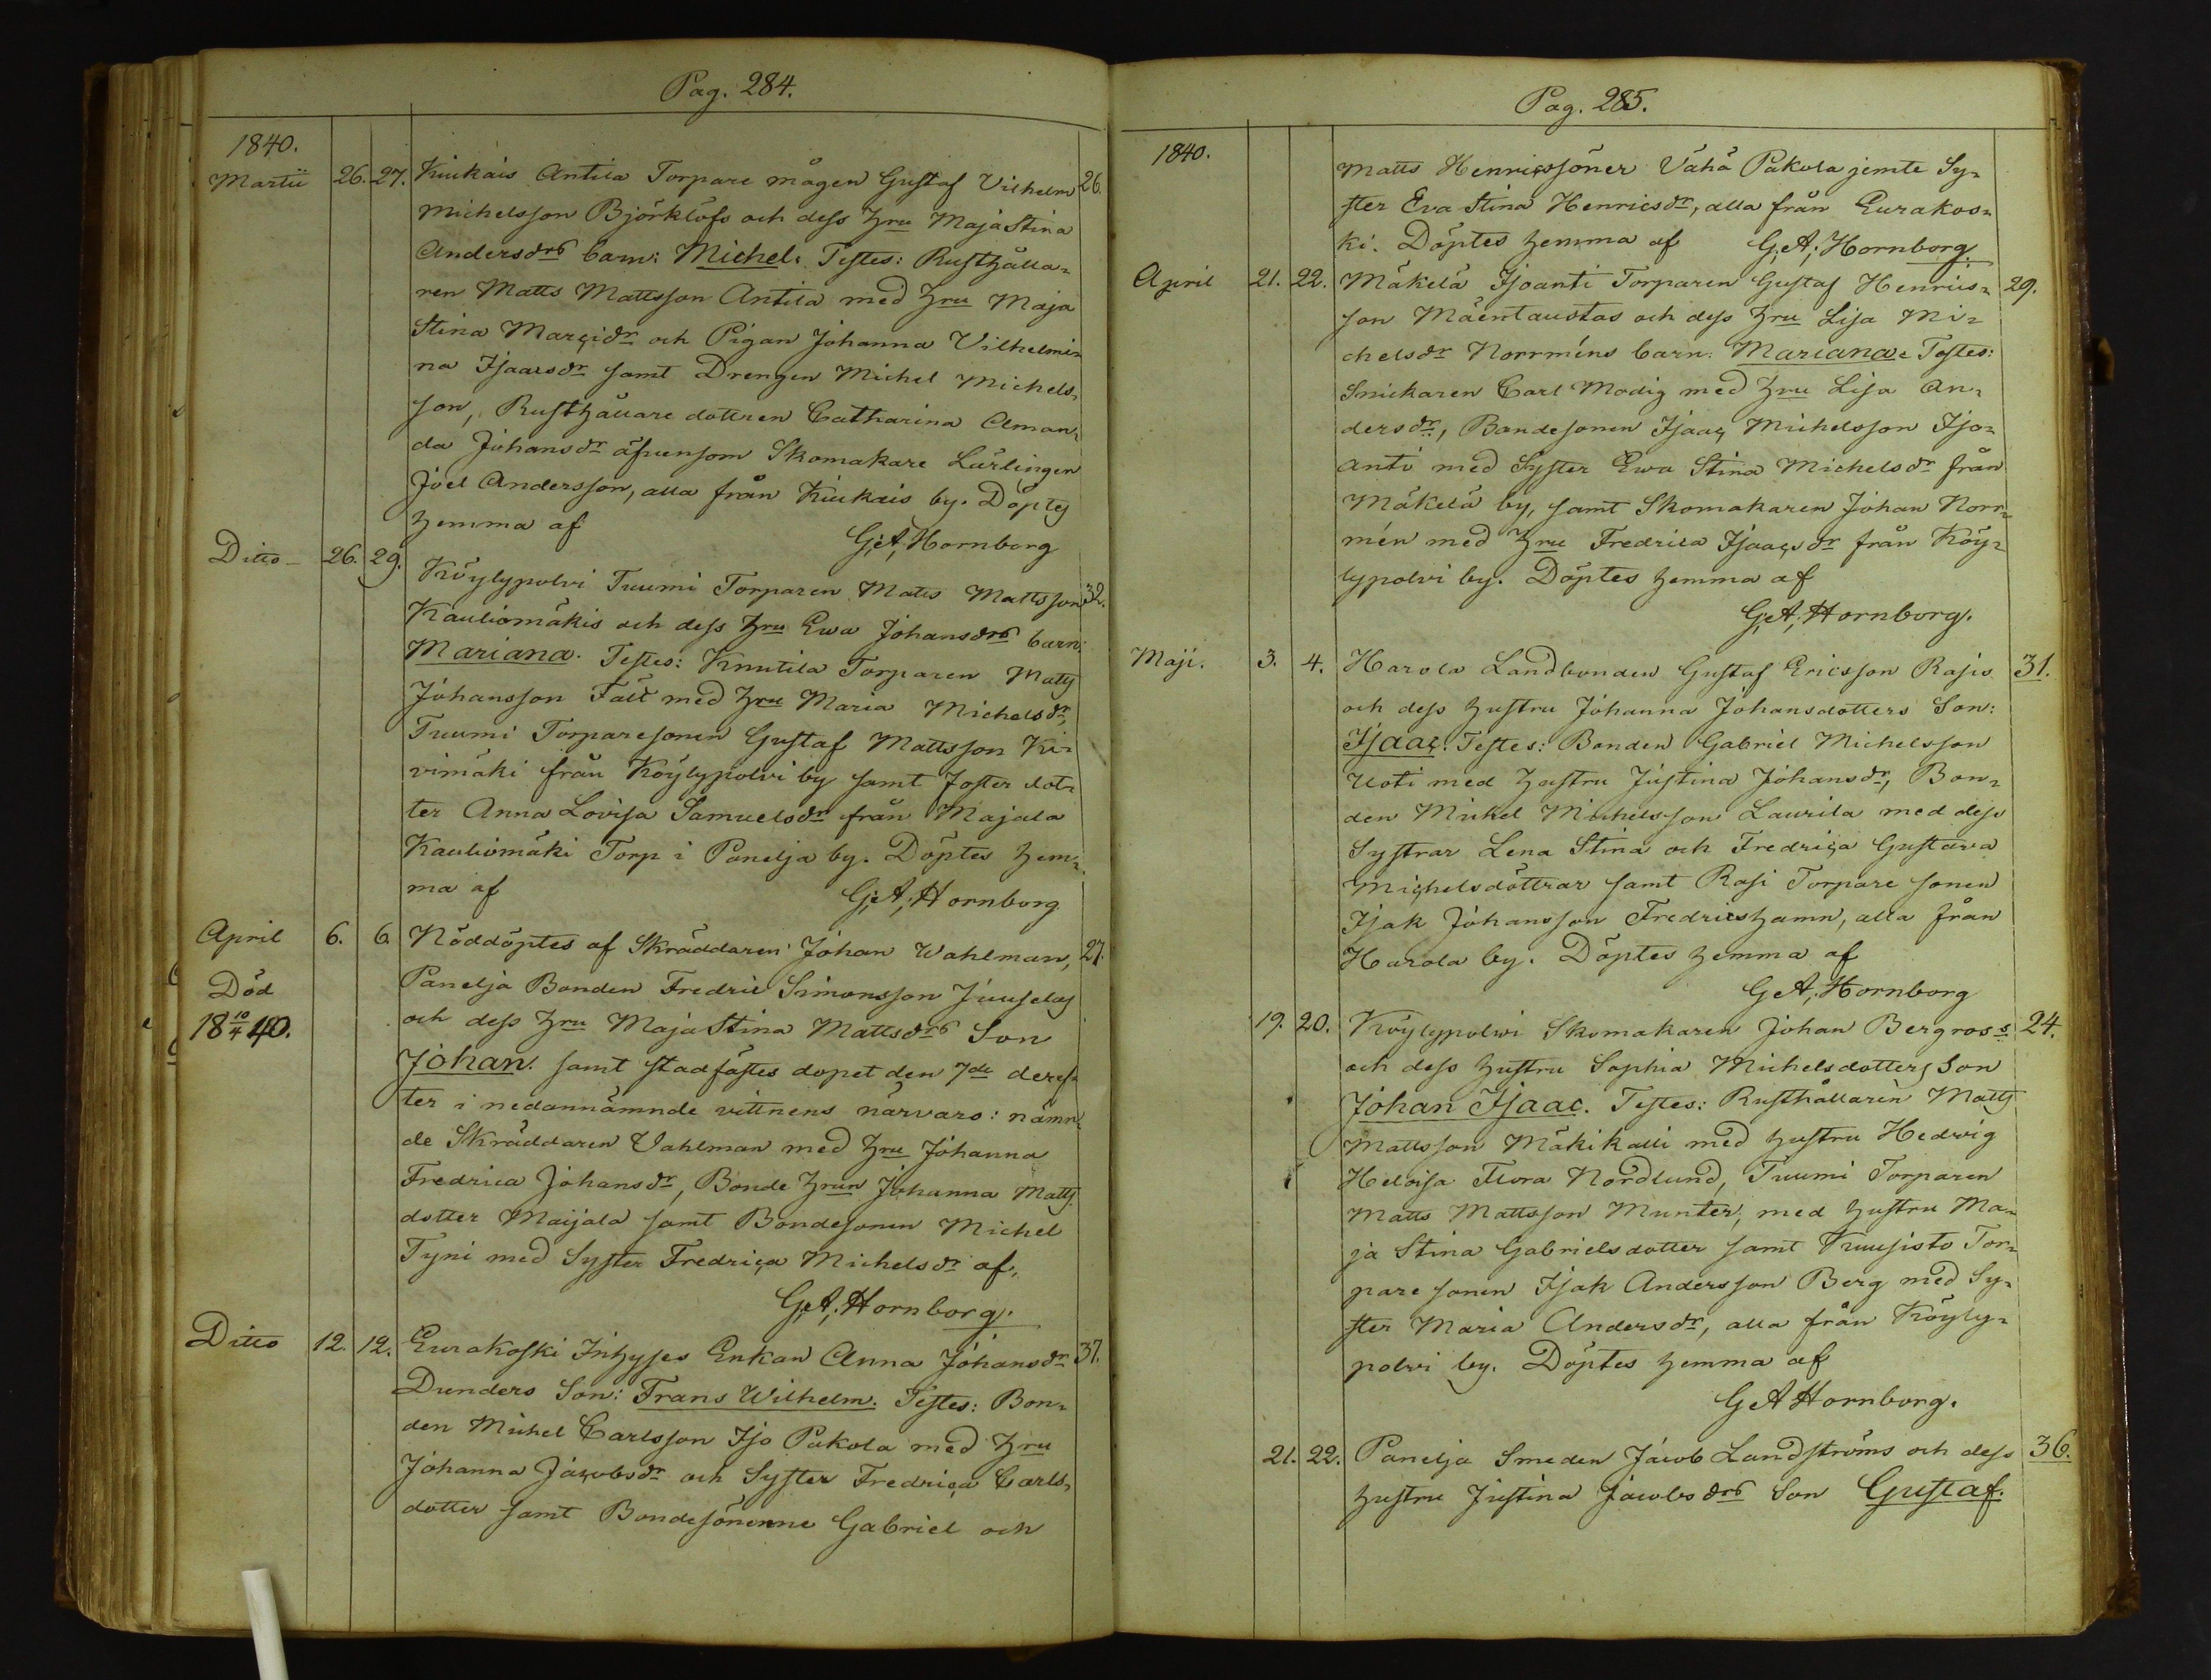 Pag. 284.
1840.
Martii 26. 27. Kiukais Antila Torpare mågen Gustaf Vilhelm 26.
Michelsson Björklöfs och dess hru Maja Stina
Andersdrs barn: Michel. Testes: Rusthålla=
ren Matts Mattsson Antila med hru Maja
Stina Marcidr och Pigan Johanna Vilhelmi=
na Isaacsdr samt Drengen Michel Michels=
son, Rusthållare dottren Catharina Aman=
da Johansdr äfvensom Skomakare Lärlingen
Joel Andersson, alla från Kiukais by. Döptes
hemma af G; A; Hornborg
Ditto 26. 29. Köylypolvi Tuumi Torparen Matts Mattsson 32.
Kauliomäkis och dess hru Ewa Johansdrs barn:
Mariana. Testes: Knutila Torparen Matts
Johansson Fält med hru Maria Michelsdr,
Tuumi Torparesonen Gustaf Mattsson Ki=
vimäki från Köylypolvi by samt foster dot=
ter Anna Lovisa Samuelsdr från Majala
Kauliomäki Torp i Panelja by. Döptes hem=
ma af G; A; Hornborg
April 6. 6. Nöddöptes af Skräddaren Johan Wahlman, 27.
Död
18 10/4 40.
Panelja Bonden Fredric Simonsson Juuselas
och dess hru Maja Stina Mattsdrs Son
Johan. samt stadfästes dopet den 7de deref=
ter i nedannämnde vittnens närvaro: nämn=
de Skräddaren Vahlman med hru Johanna
Fredrica Johansdr, Bonde hrun Johanna Matts
dotter Maijala samt Bondesonen Michel
Tyni med Syster Fredrica Michelsdr af,
G; A; Hornborg.
Ditto 12. 12. Eurakoski Inhyses Enkan Anna Johansdr 37.
Dunders Son: Frans Wilhelm. Testes: Bon=
den Michel Carlsson Iso Pakola med hru
Johanna Jacobsdr och Syster Fredrica Carls=
dotter samt Bondesönerne Gabriel och
Pag. 285.
1840.
Matts Henricssöner Vähä Pakola jemte Sy=
ster Eva Stina Henricsdr, alla från Eurakos=
ki. Döptes hemma af G; A; Hornborg.
April 21. 22. Mäkelä Isoanti Torparen Gustaf Henrics= 29.
son Mäentaustas och dess hru Lisa Mi=
chelsdr Norrméns barn: Mariana. Testes:
Snickaren Carl Modig med hru Lisa An=
dersdr, Bondesonen Isaac Michelsson Iso=
anti med Syster Ewa Stina Michelsdr från
Mäkelä by, samt Skomakaren Johan Norr=
mén med hru Fredrica Isaacsdr från Köy=
lypolvi by. Döptes hemma af
G; A; Hornborg.
Maji. 3. 4. Harola Landbonden Gustaf Ericsson Rasis 31.
och dess hustru Johanna Johansdotters Son:
Isaac. Testes: Bonden Gabriel Michelsson
Uoti med hustru Justina Johansdr, Bon=
den Mickel Michelsson Laurila med dess
Systrar Lena Stina och Fredrica Gustava
Michelsdöttrar samt Rasi Torpare sonen
Isak Johansson Fredricshamn, alla från
Harola by. Döptes hemma af
G A; Hornborg
19. 20. Köylypolvi Skomakaren Johan Bergross 24.
och dess hustru Sophia Michelsdotters Son
Johan Isaac. Testes: Rusthållaren Matts
Mattsson Mäkikalli med hustru Hedvig
Heloisa Flora Nordlund, Tuumi Torparen
Matts Mattsson Munter, med hustru Ma=
ja Stina Gabrielsdotter samt Kuusisto Tor=
pare sonen Isak Andersson Berg med Sy=
ster Maria Andersdr, alla från Köyly=
polvi by. Döptes hemma af
G A Hornborg.
21. 22. Panelja Smeden Jacob Landströms och dess 36.
hustru Justina Jacobsdrs Son Gustaf.